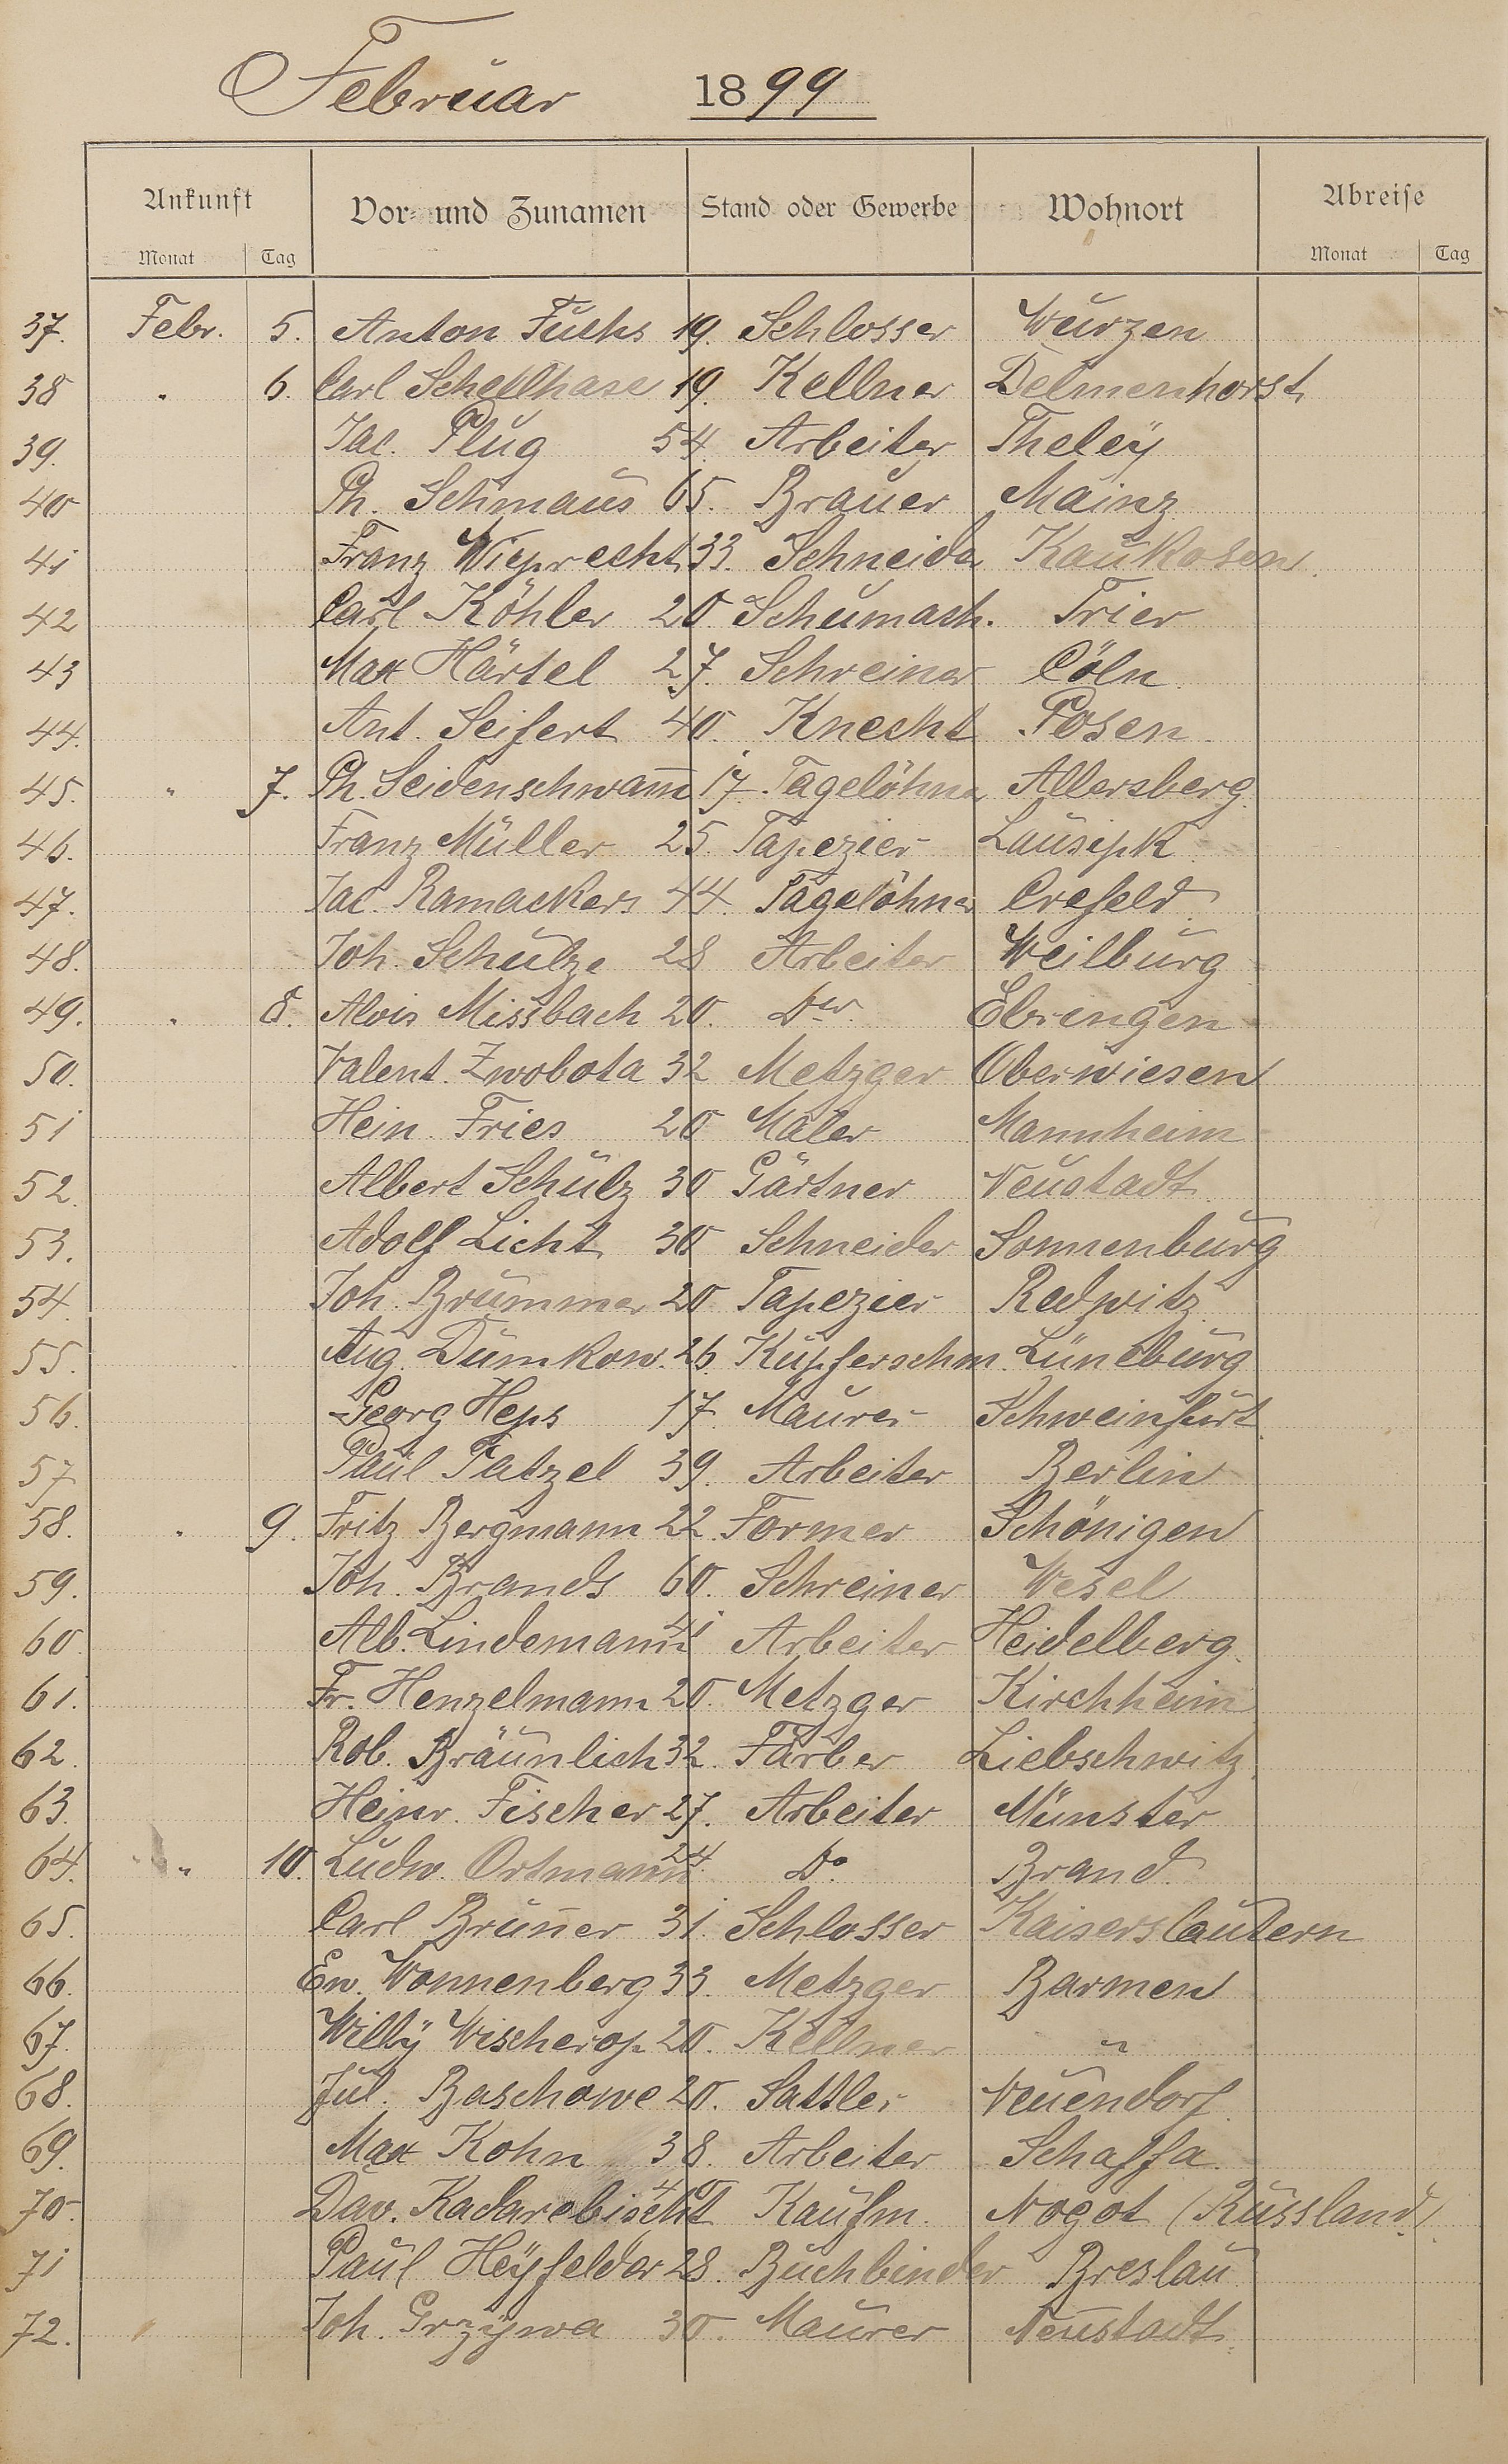 Februar 1899
Ankunft Vor- und Zunamen Stand oder Gewerbe Wohnort Abreise
Monat Tag Monat Tag
37. Febr. 5. Anton Fuchs 19. Schlosser Wurzen
38 " 6. Carl Schellhase 19. Kellner Delmenhorst
39. Jac. Plug 54. Arbeiter Theley
40 Ph. Schmaus 65. Brauer Mainz
41 Franz Wieprecht 33. Schneider Kaukosen.
42 Carl Köhler 20 Schumach. Trier
43 Max Härtel 27. Schreiner Cöln
44. Ant. Seifert 40. Knecht Posen.
45. " 7. Ph. Seidenschwam̅ 17. Tagelöhner Allersberg.
46. Franz Müller 25. Tapezier Lausipk
47. Jac. Ramackers 44. Tagelöhner Crefeld.
48. Joh. Schulze 28 Arbeiter Weilburg
49. " 8. Alois Missbach 20. Do. Ebringen
50. Valent. Zwobota 32 Metzger Oberwiesen
51 Hein. Fries 20 Maler Mannheim
52. Albert Schulz 30 Gärtner Neustadt.
53. Adolf Licht 30 Schneider Sonnenburg
54. Joh. Brummer 20 Tapezier Redwitz
55. Aug. Dumkow. 26. Kupferschm. Lüneburg
56. Georg Heps 17. Maurer Schweinfurt
57 Paul Tatzel 39. Arbeiter Berlin
58. " 9. Fritz Bergmann 22. Former Schönigen
59. Joh. Brands 60. Schreiner Wesel
60 Alb. Lindemann 41 Arbeiter Heidelberg.
61. Fr. Henzelmann 20. Metzger Kirchheim
62. Rob. Bräunlich 32. Färber Liebschwitz.
63. Heinr. Fischer 27. Arbeiter Münster
64. " 10. Ludw. Ortmann 24. Do. Brand.
65. Carl Brun̅er 31. Schlosser Kaiserslautern
66. Ew. Wonnenberg 33. Metzger Barmen
67. Willy Wischerop. 20. Kellner "
68. Jul. Baschowe 20. Sattler Neuendorf.
69. Max Kohn 38. Arbeiter Schaffa.
70. Dav. 40 Kaufm. Nogot (Russland).
71 Paul Heyfelder 28. Buchbinder Breslau
72. Joh. Grzywa 30. Maurer Neustadt.